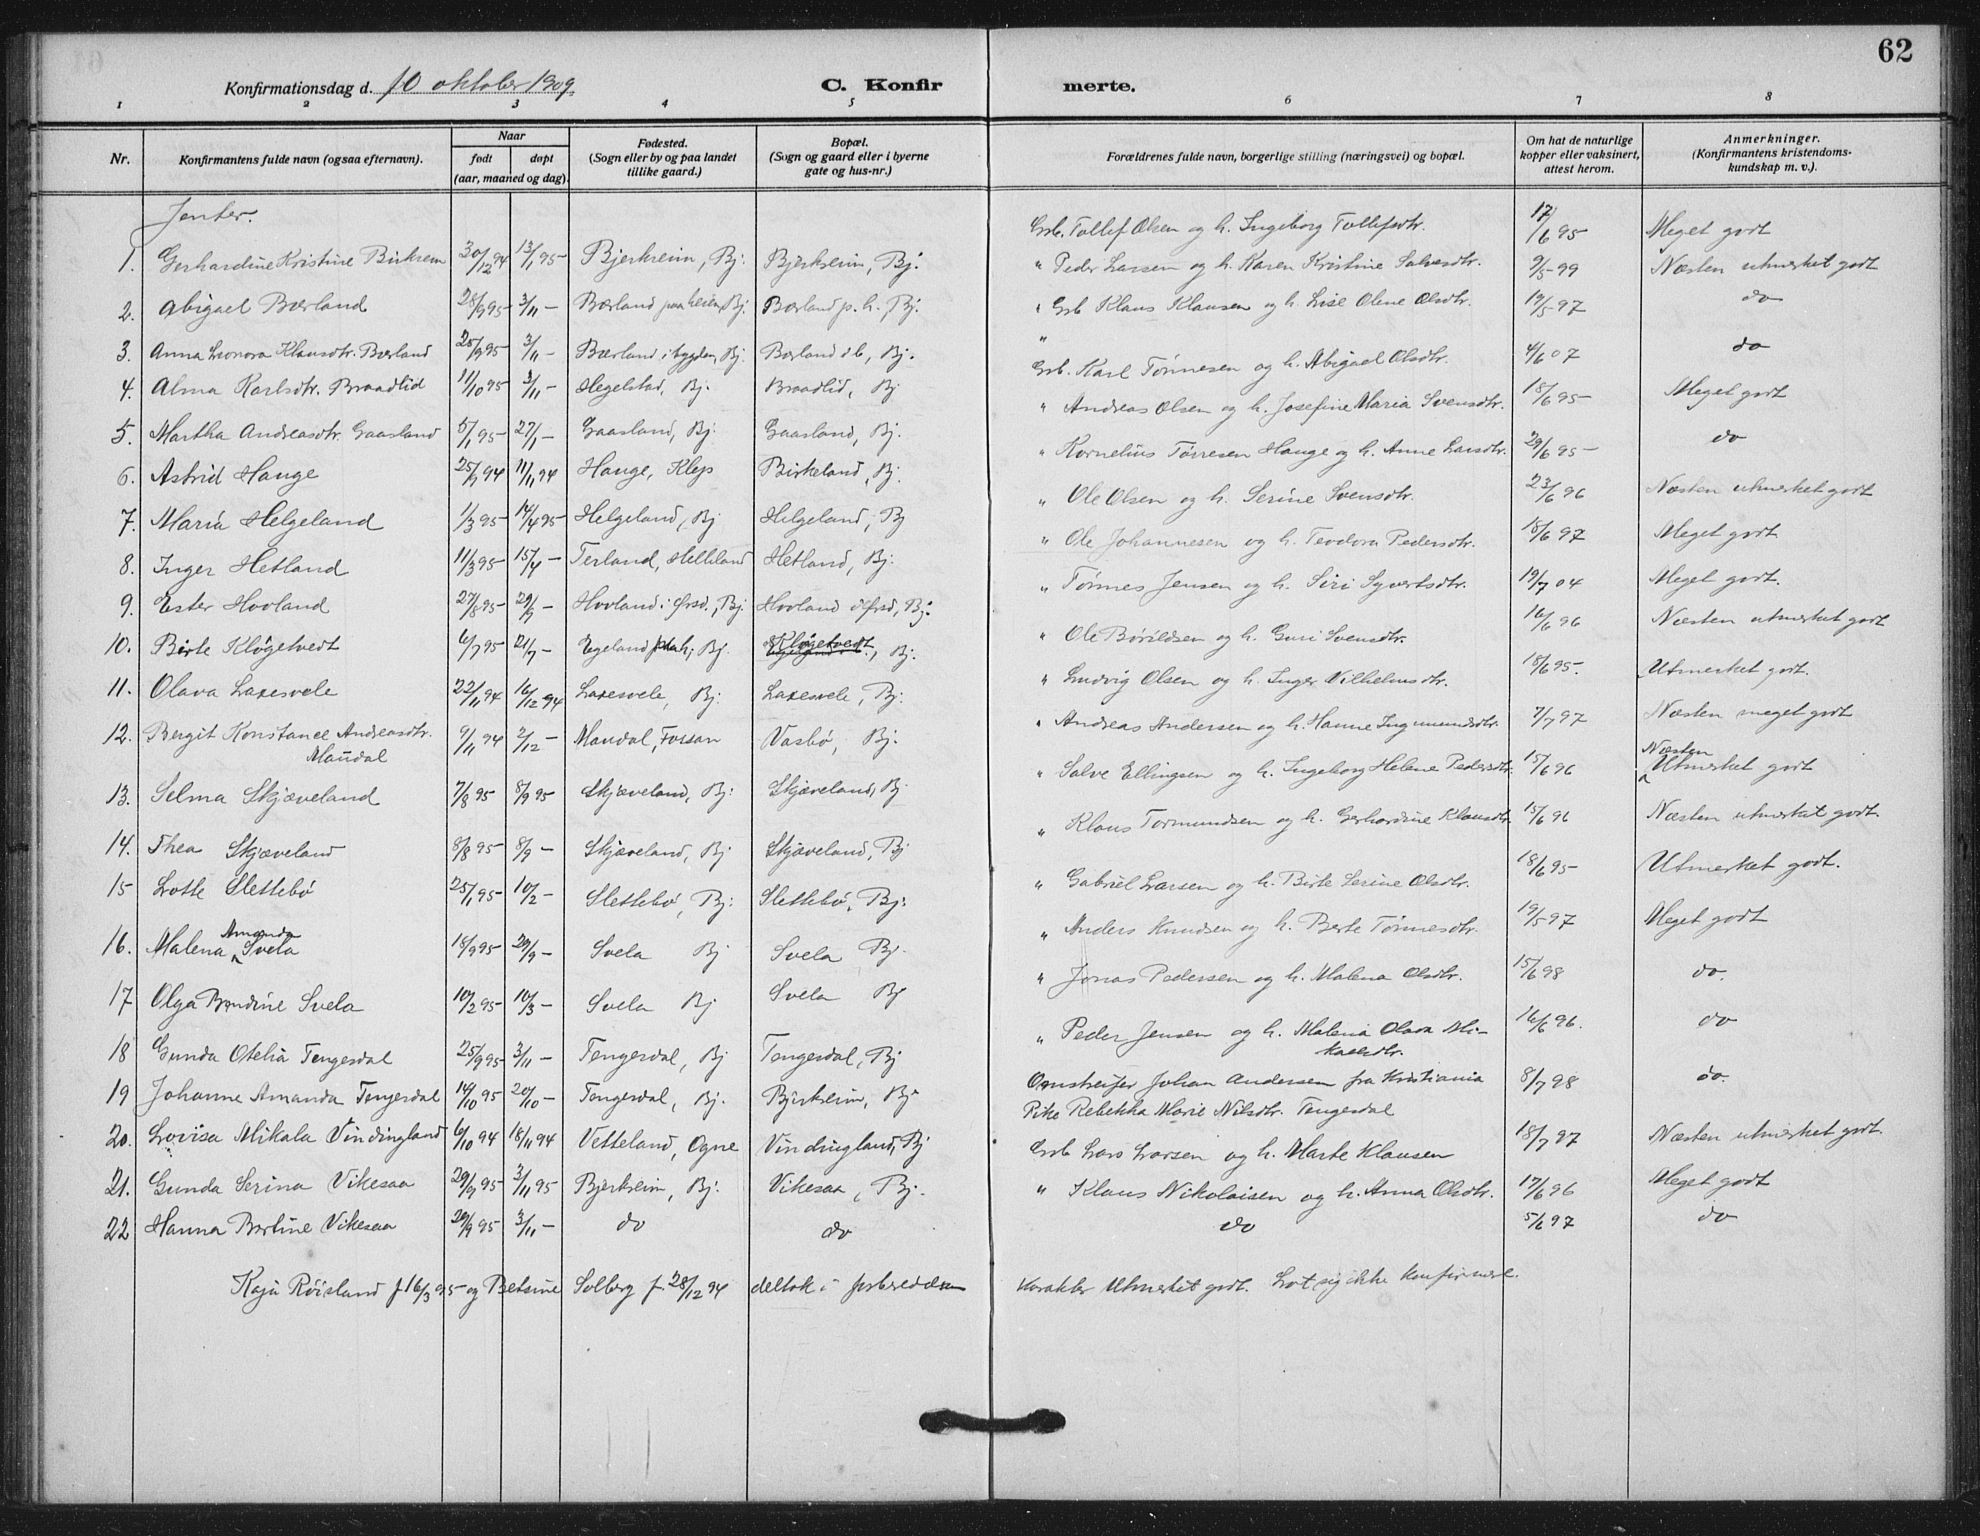 62
Konfirmationsdag d. 10 oktober 1909.
C. Konfirmerte.
1 2 3 4 5 6 7 8
Nr.
Konfirmantens fulde navn (ogsaa efternavn).
Naar
født døpt
(aar, maaned og dag).
Fødested.
(Sogn eller by og paa landet
tillike gaard.)
Bopæl.
(Sogn og gaard eller i byerne
gate og hus-nr.)
Forældrenes fulde navn, borgerlige stilling (næringsvei) og bopæl.
Om hat de naturlige
kopper eller vaksinert,
attest herom.
Anmerkninger.
(Konfirmantens kristendoms-
kundskap m. v.).
Jenter.
1. Gerhardine Kristine Birkrem 30/12 94 13/1 95 Bjerkreim, Bj. Bjerkreim, Bj. Grb. Tollef Olsen og h. Ingeborg Tollefsdtr. 17/6 95 Meget godt
2. Abigael Bærland 28/9 95 3/11 — Bærland paa heien, Bj. Bærland p. h., Bj. " Peder Larsen og h. Karen Kristine Salvesdtr. 9/5 99 Næsten utmerket godt
3. Anna Leonora Klausdtr. Bærland 25/9 95 3/11 — Bærland i bygden, Bj. Bærland i b, Bj. " Grb Klaus Klausen og h. Lise Oline Olsdtr. 19/5 97 do
4. Alma Karlsdtr. Braadlid 11/10 95 3/11 — Hegelstad, Bj. Braadlid, Bj Grb. Karl Tønnesen og h. Abigael Olsdtr. 4/6 07 do
5. Martha Andreasdtr. Gaasland 5/1 95 27/1 — Gaasland, Bj. Gaasland, Bj. " Andreas Olsen og h. Josefine Maria Svensdtr. 18/6 95 Meget godt
6. Astrid Hauge 25/9 94 11/11 94 Hauge, Klep Birkeland, Bj. " Kornelius Tørresen Hauge og h. Anne Larsdtr. 29/6 95 do
7. Maria Helgeland 1/3 95 14/4 95 Helgeland, Bj Helgeland, Bj " Ole Olsen og h. Serine Svensdtr. 23/6 96 Næsten utmerket godt
8. Inger Hetland 11/3 95 15/4 — Terland, Helleland Hetland, Bj. " Ole Johannesen og h. Teodora Pedersdtr. 18/6 97 Meget godt
9. Ester Hovland 27/8 95 29/9 — Hovland i Ørsd., Bj. Hovland i Ørsd, Bj. " Tønnes Jensen og h. Siri Syvertsdtr. 19/7 04 Meget godt.
10. Birte Kløgetvedt 6/7 95 21/7 — Egeland, Bj. Kløgetvedt, Bj. " Ole Børildsen og h. Guri Svensdtr. 16/6 96 Næsten utmerket godt
11. Olava Laxesvele 22/11 94 16/12 94 Laxesvele, Bj. Laxesvele, Bj. " Ludvig Olsen og h. Inger Vilhelmsdtr. 18/6 95. Utmerket godt.
12. Bergit Konstance Andreasdtr. Maudal 9/11 94 2/12 — Maudal, Forsan Vasbø, Bj. " Andreas Andersen og h. Hanne Ingmundsdtr. 7/7 97 Næsten meget godt
13. Selma Skjæveland 7/8 95 8/9 95 Skjæveland, Bj. Skjæveland, Bj. " Salve Ellingsen og h. Ingeborg Helene Pedersdtr. 15/6 96 Næsten Utmerket godt
14. Thea Skjæveland 8/8 95 8/9 — Skjæveland, Bj Skjæveland, Bj " Klaus Tormundsen og h. Gerhardine Klausdtr. 15/6 96 Næsten utmerket godt.
15 Lotte Slettebø 25/1 95 10/2 — Slettebø, Bj. Slettebø, Bj. " Gabriel Larsen og h. Birte Serine Olsdtr. 18/6 95 Utmerket godt.
16. Malena Amanda Svela 18/9 95 29/9 — Svela Bj Svela Bj. " Anders Knudsen og h. Berte Tønnesdtr. 19/5 97 Meget godt
17 Olga Svela 10/2 95 10/3 — Svela Bj Svela Bj " Jonas Pedersen og h. Malena Olsdtr. 15/6 98 do.
18 Gunda Otelia Tengesdal 25/9 95 3/11 — Tengesdal, Bj Tengesdal, Bj " Peder Jensen og h. Malena Olava Mikaelsdtr. 16/6 96. do
19 Johanne Amanda Tengesdal 14/10 95 20/10 — Tengesdal, Bj. Bjerkreim, Bj. Omstreifer Johan Andersen fra Kristiania
Pike Rebekka Marie Nilsdtr. Tengesdal 8/7 98 do.
20. Lovisa Mikala Vindingland 6/10 94 18/11 94 Vetteland, Ogne Vindingland, Bj Grb Lars Larsen og h. Marte Klausen 18/7 97 Næsten utmerket godt.
21. Gunda Serina Vikesaa 29/9 95 3/11 95 Bjerkreim, Bj. Vikesaa, Bj. " Klaus Nikolaisen og h. Anna Olsdtr. 17/6 96 Meget godt
22 Hanna Bertine Vikesaa 29/9 95 3/11 — do do do 5/6 97 do
Kaja Røisland f. 16/3 95 og Betsine Solberg f. 28/12 94 deltok i forberedelsen karakter Utmerket godt. Lot sig ikke konfirmere.